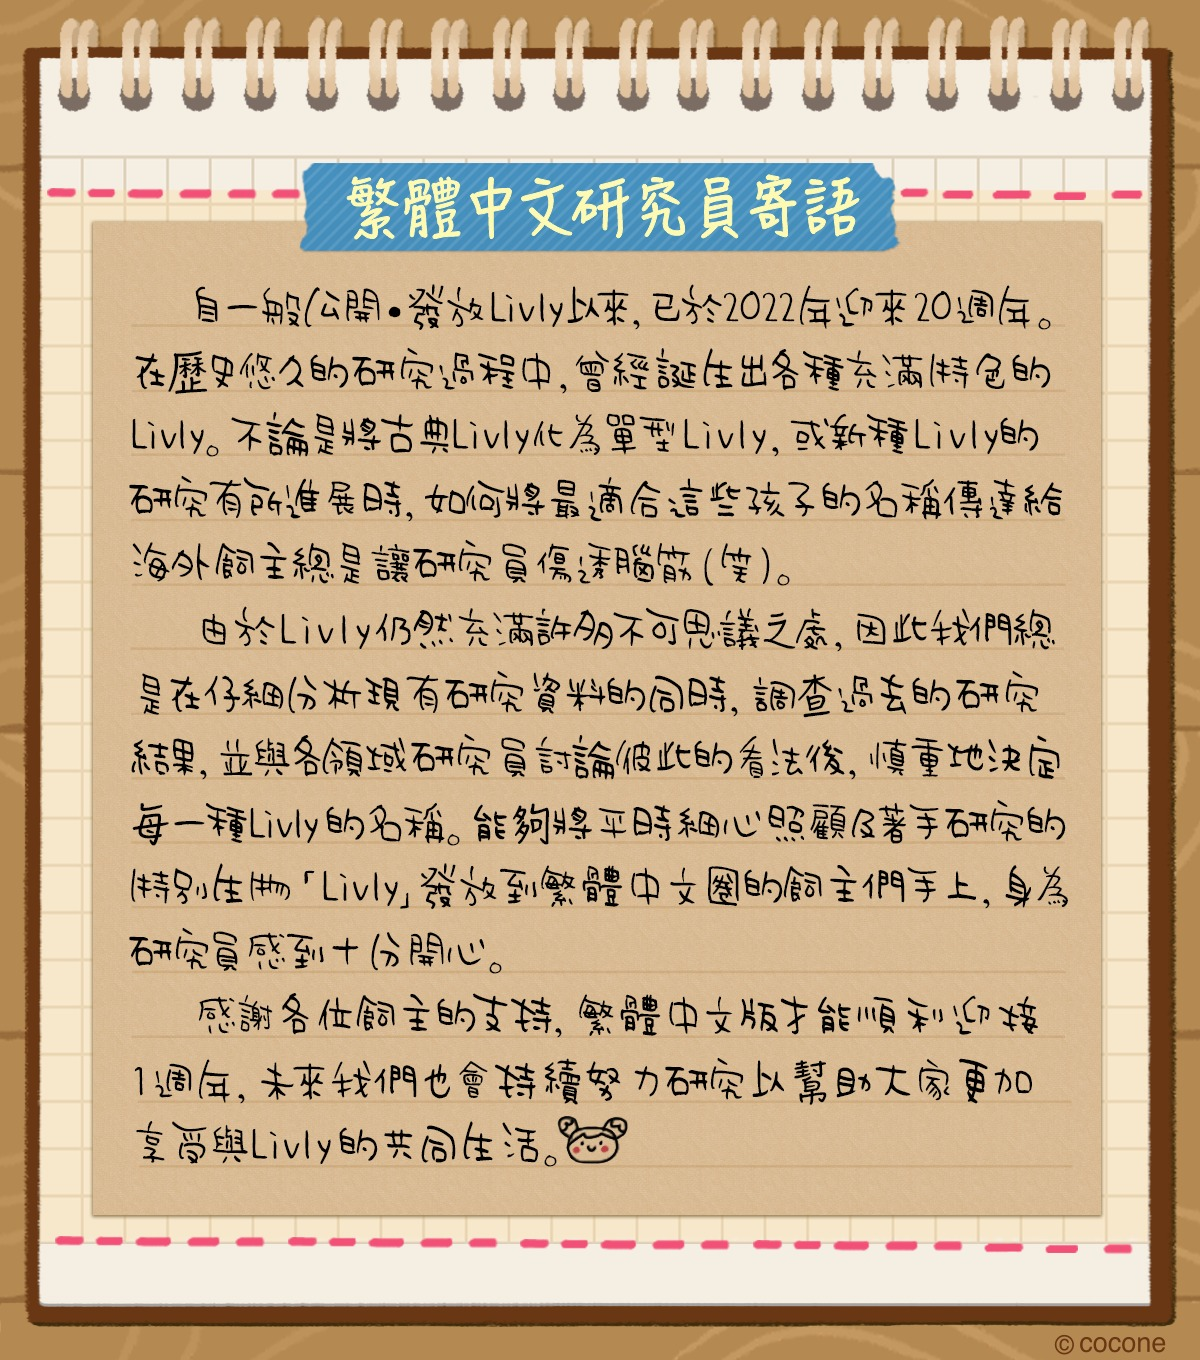 繁體中文研究員寄語
自一般公開•發放Livly以來,已於2022年迎來20週年。
在歷史悠久的研究過程中,曾經誕生出各種充滿特色的
Livly。不論是將古典Livly化為單型Livly,或新種Livly的
研究有所進展時,如何將最適合這些孩子的名稱傳達給
海外飼主總是讓研究員傷透腦筋(笑)。
由於Livly仍然充滿許多不可思議之處,因此我們總
是在仔細分析現有研究資料的同時,調查過去的研究
結果,並與各領域研究員討論彼此的看法後,慎重地決定
每一種Livly的名稱。能夠將平時細心照顧及著手研究的
特別生物「Livly」發放到繁體中文圈的飼主們手上,身為
研究員感到十分開心。
感謝各位飼主的支持,繁體中文版才能順利迎接
1週年,未來我們也會持續努力研究以幫助大家更加
享受與Livly的共同生活。
© cocone